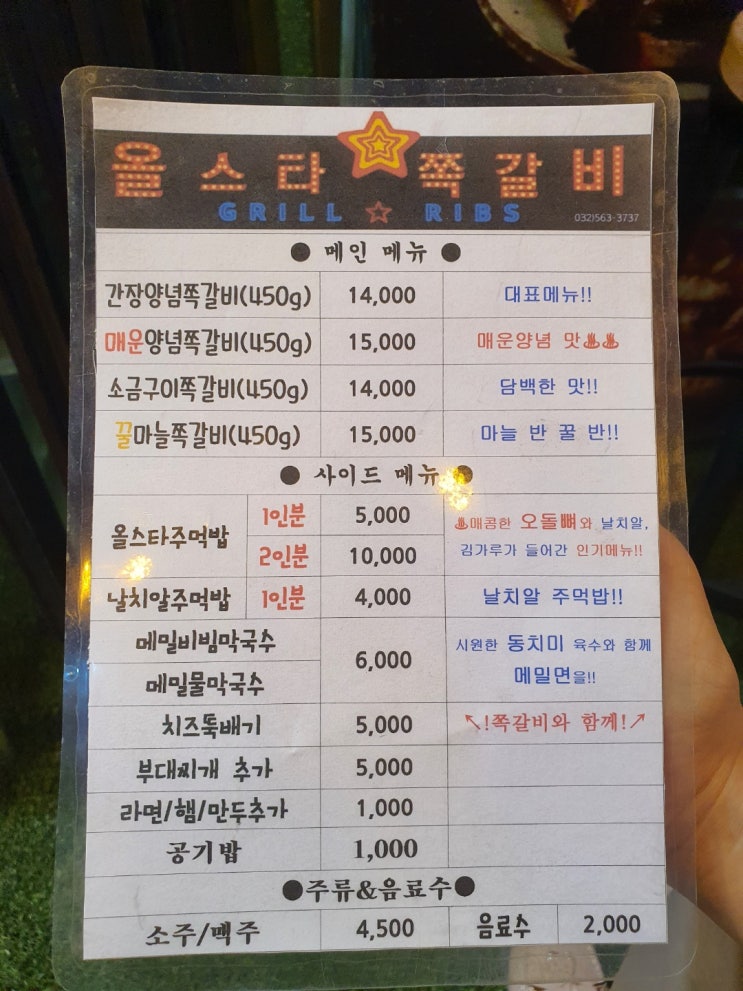 올스타 쪽갈비
GRILL RIBS 032)563-3737
● 메인 메뉴 ●
간장양념쪽갈비(450g) 14,000 대표메뉴!!
매운양념쪽갈비(450g) 15,000 매운양념 맛♨♨
소금구이쪽갈비(450g) 14,000 담백한 맛!!
꿀마늘쪽갈비(450g) 15,000 마늘 반 꿀 반!!
● 사이드 메뉴 ●
올스타주먹밥 1인분 5,000 ♨매콤한 오돌뼈와 날치알,
2인분 10,000 김가루가 들어간 인기메뉴!!
날치알주먹밥 1인분 4,000 날치알 주먹밥!!
메밀비빔막국수 6,000 시원한 동치미 육수와 함께
메밀물막국수 메밀면을!!
치즈뚝배기 5,000 ↖!쪽갈비와 함께!↗
부대찌개 추가 5,000
라면/햄/만두추가 1,000
공기밥 1,000
●주류&음료수●
소주/맥주 4,500 음료수 2,000